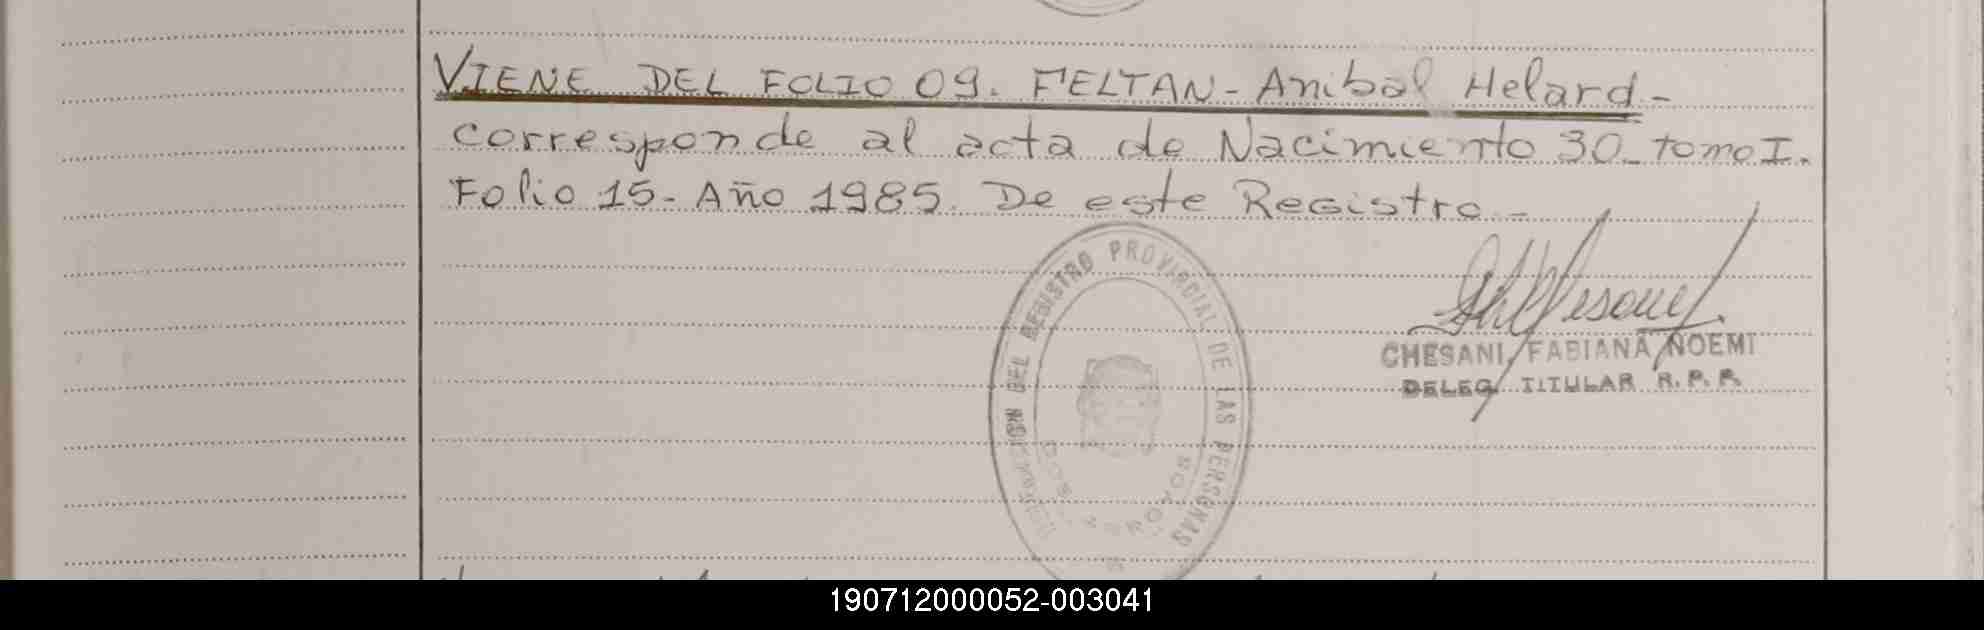 VIENE DEL FOLIO 09. FELTAN - Anibal Helard -
corresponde al acta de Nacimiento 30 - tomo I.
Folio 15 - Año 1985. De este Registro -
DEL REGISTRO PROVINCIAL DE LAS PERSONAS
CHESANI, FABIANA NOEMI
DELEG TITULAR R.P.P.
190712000052-003041